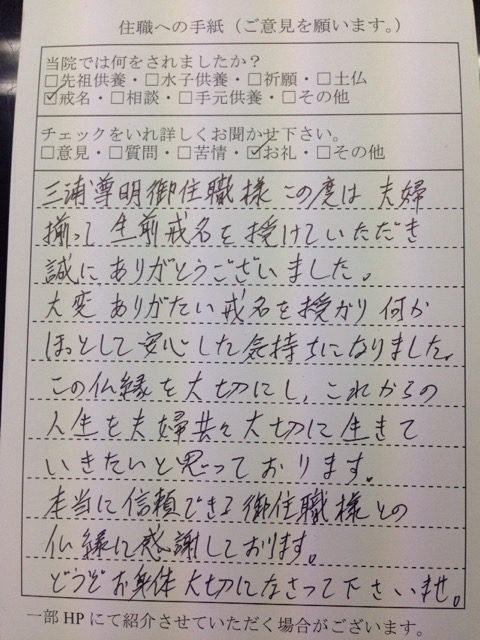 住職への手紙（ご意見を願います。）
当院では何をされましたか？
□先祖供養・□水子供養・□祈願・□土仏
☑戒名・□相談・□手元供養・□その他
チェックをいれ詳しくお聞かせ下さい。
□意見・□質問・□苦情・☑お礼・□その他
三浦尊明御住職様 この度は 夫婦
揃って 生前戒名を 授けていただき
誠に ありがとうございました。
大変 ありがたい 戒名を授かり 何か
ほっとして 安心した 気持ちになりました。
この仏縁を 大切にし、これからの
人生を夫婦共々大切に生きて
いきたいと思っております。
本当に信頼できる御住職様との
仏縁に感謝しております。
どうぞお身体大切になさって下さいませ。
一部 HP にて紹介させていただく場合がございます。